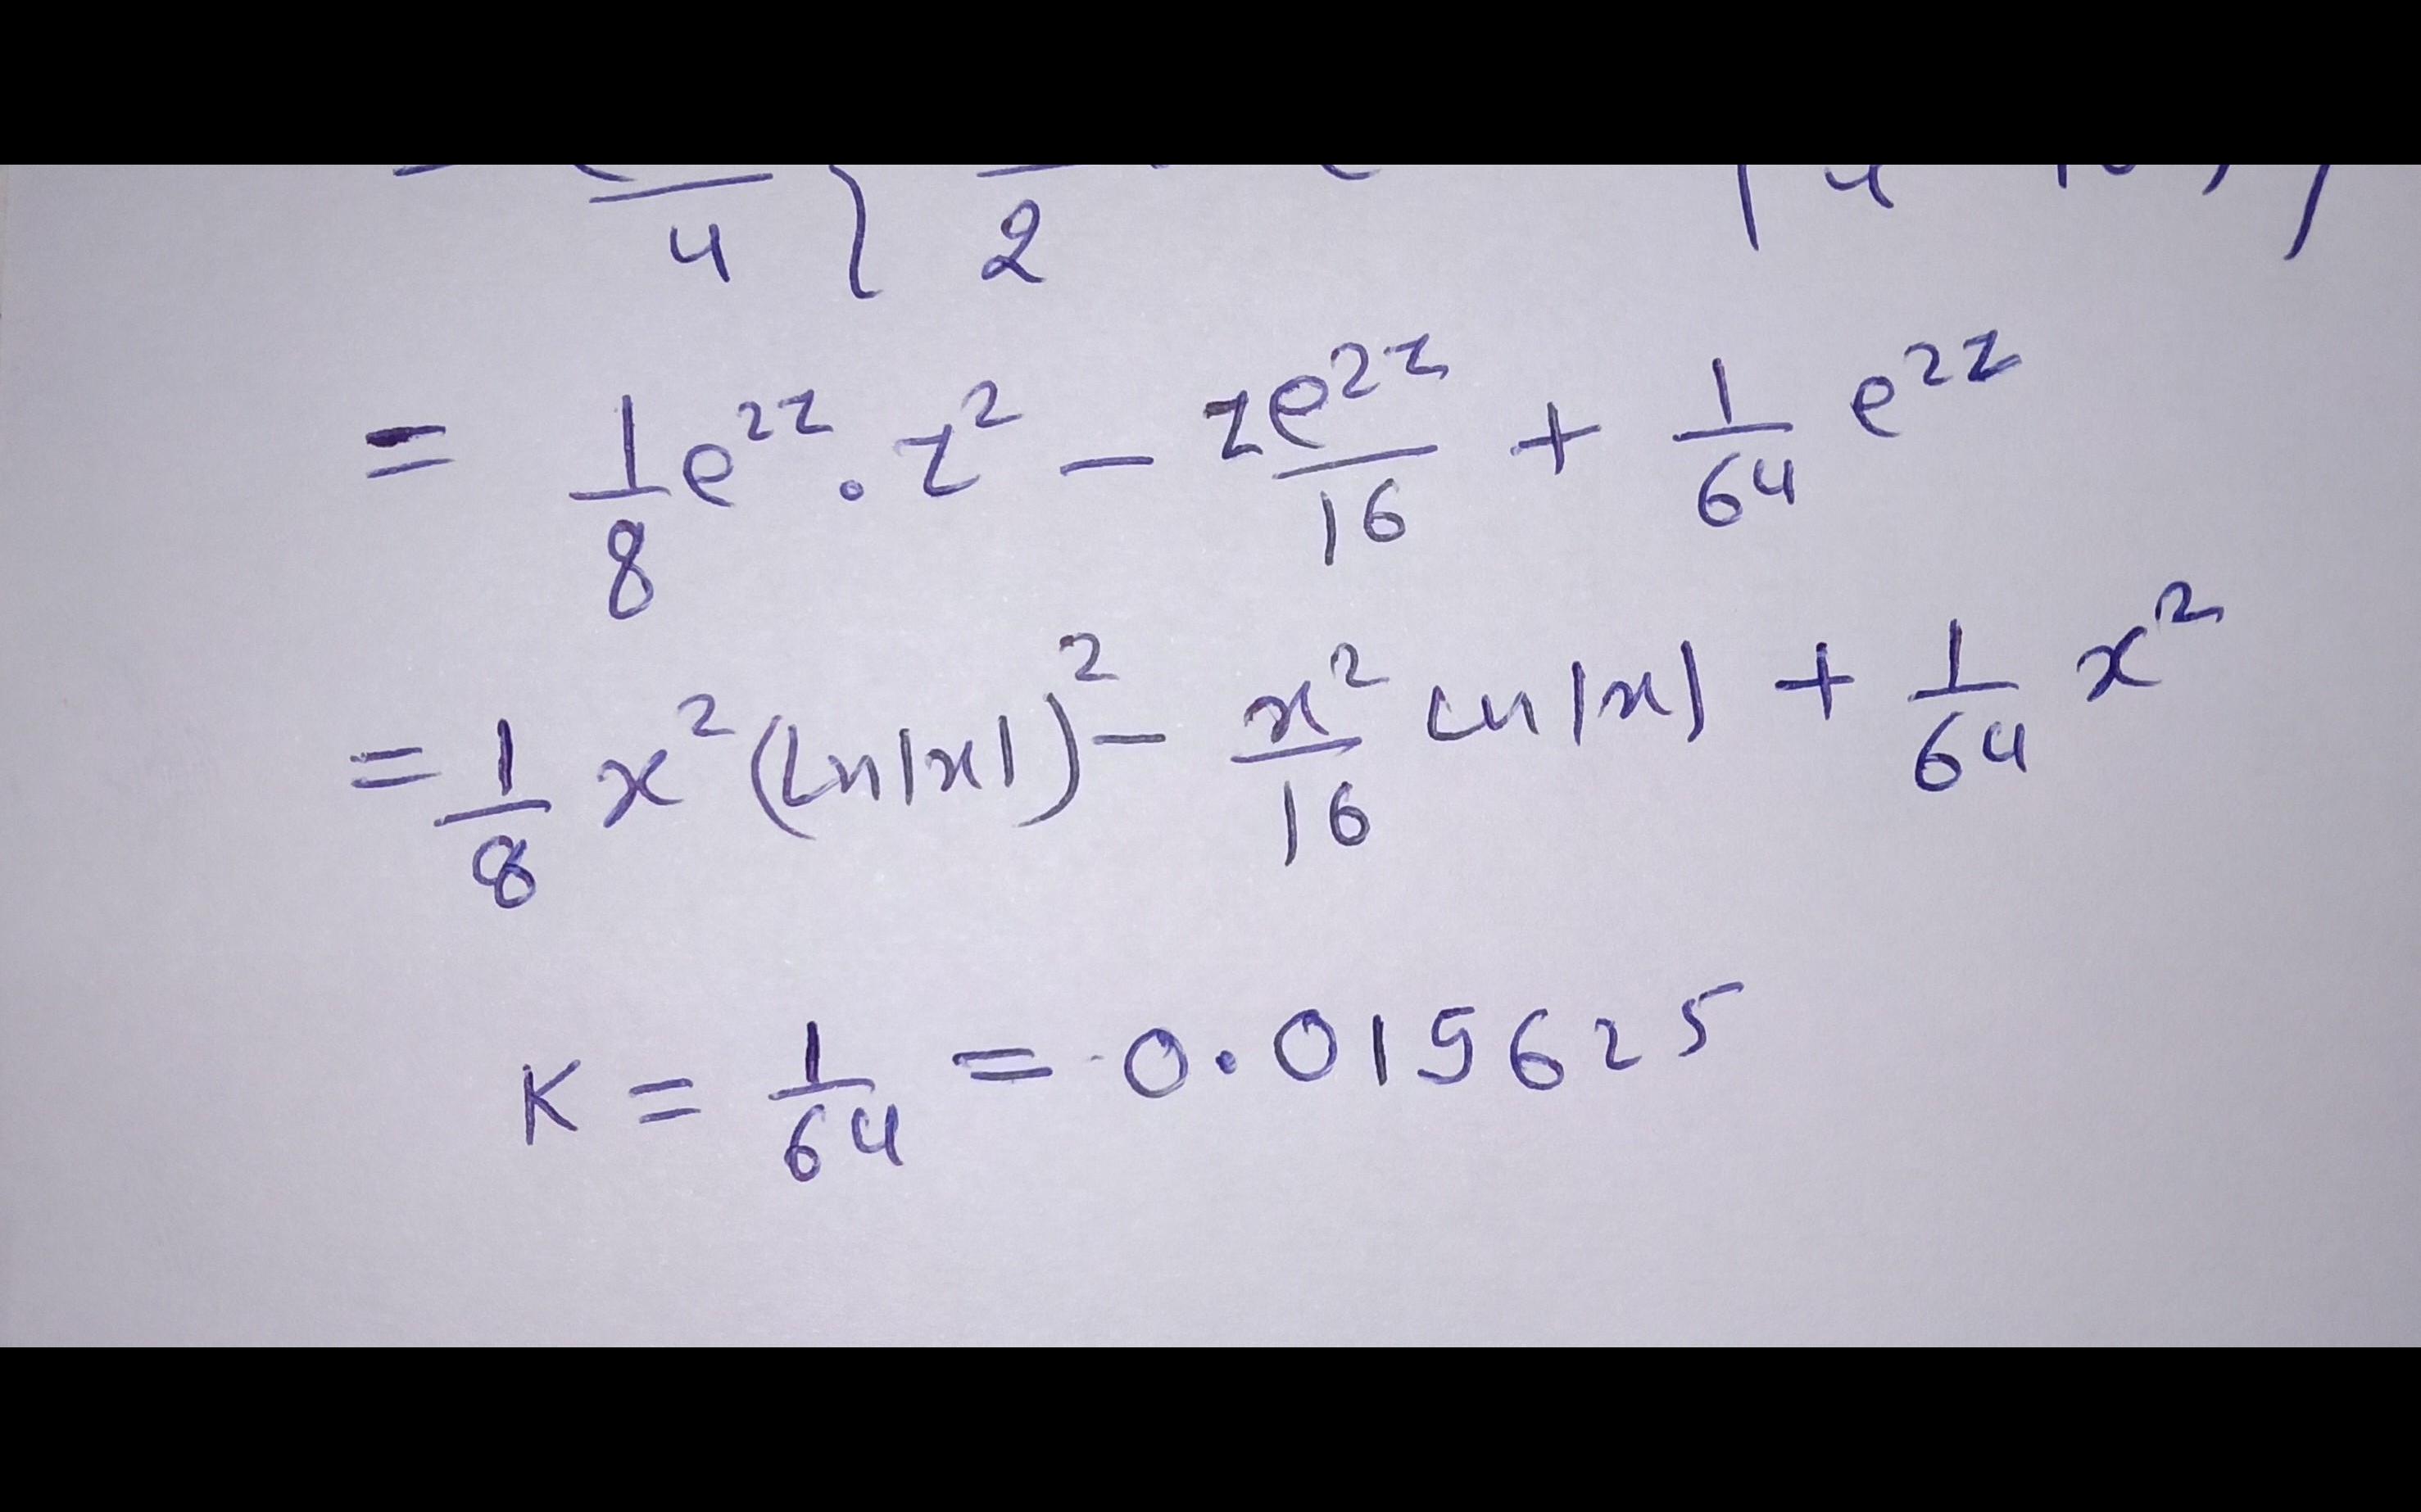 4 { 2
= 1/8 e^{2z} . z^2 - ze^{2z}/16 + 1/64 e^{2z}
= 1/8 x^2 (ln|x|)^2 - x^2/16 ln|x| + 1/64 x^2
K = 1/64 = 0.015625